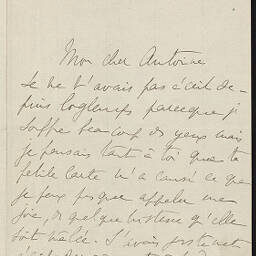 Mon cher Antoine
Je ne t'avais pas écrit de-
puis longtemps parce que je
souffre beaucoup des yeux mais
je pensais tant à toi que ta
petite carte m'a causé ce que
je peux presque appeler une
joie, de quelque tristesse qu'elle
soit mêlée. J'avais